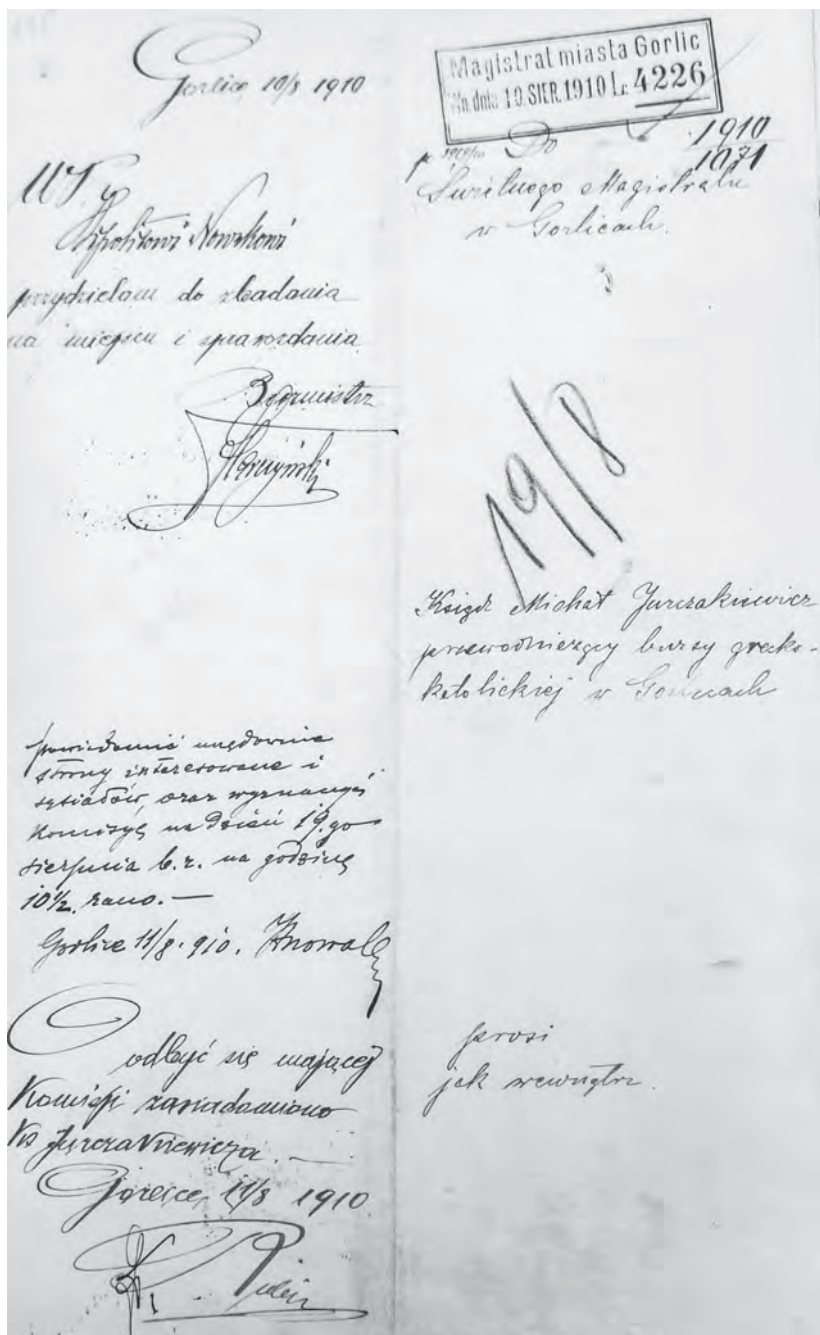 Gorlice 10/8 1910
WP
Hipolitowi Nowakowi
przydzielam do zbadania
na miejscu i sprawozdania
Burmistrz
powiadomić urzędownie
strony interesowane i
sąsiadów, oraz wyznaczyć
Komisyę na dzień 19.go
sierpnia b.r. na godzinę
10½ rano. —
Gorlice 11/8. 910. HNowak
O odbyć się mającej
Komisyi zawiadomiono
Ks Jurczakiewicza. —
Gorlice, 11/8 1910
Magistrat miasta Gorlic
Wn. dnia 10. SIER. 1910 L: 4226
Do 1910
1071
Świetnego Magistratu
w Gorlicach.
19/8
Ksiądz Michał Jurczakiewicz
przewodniczący bursy grecko-
katolickiej w Gorlicach
prosi
jak wewnątrz.